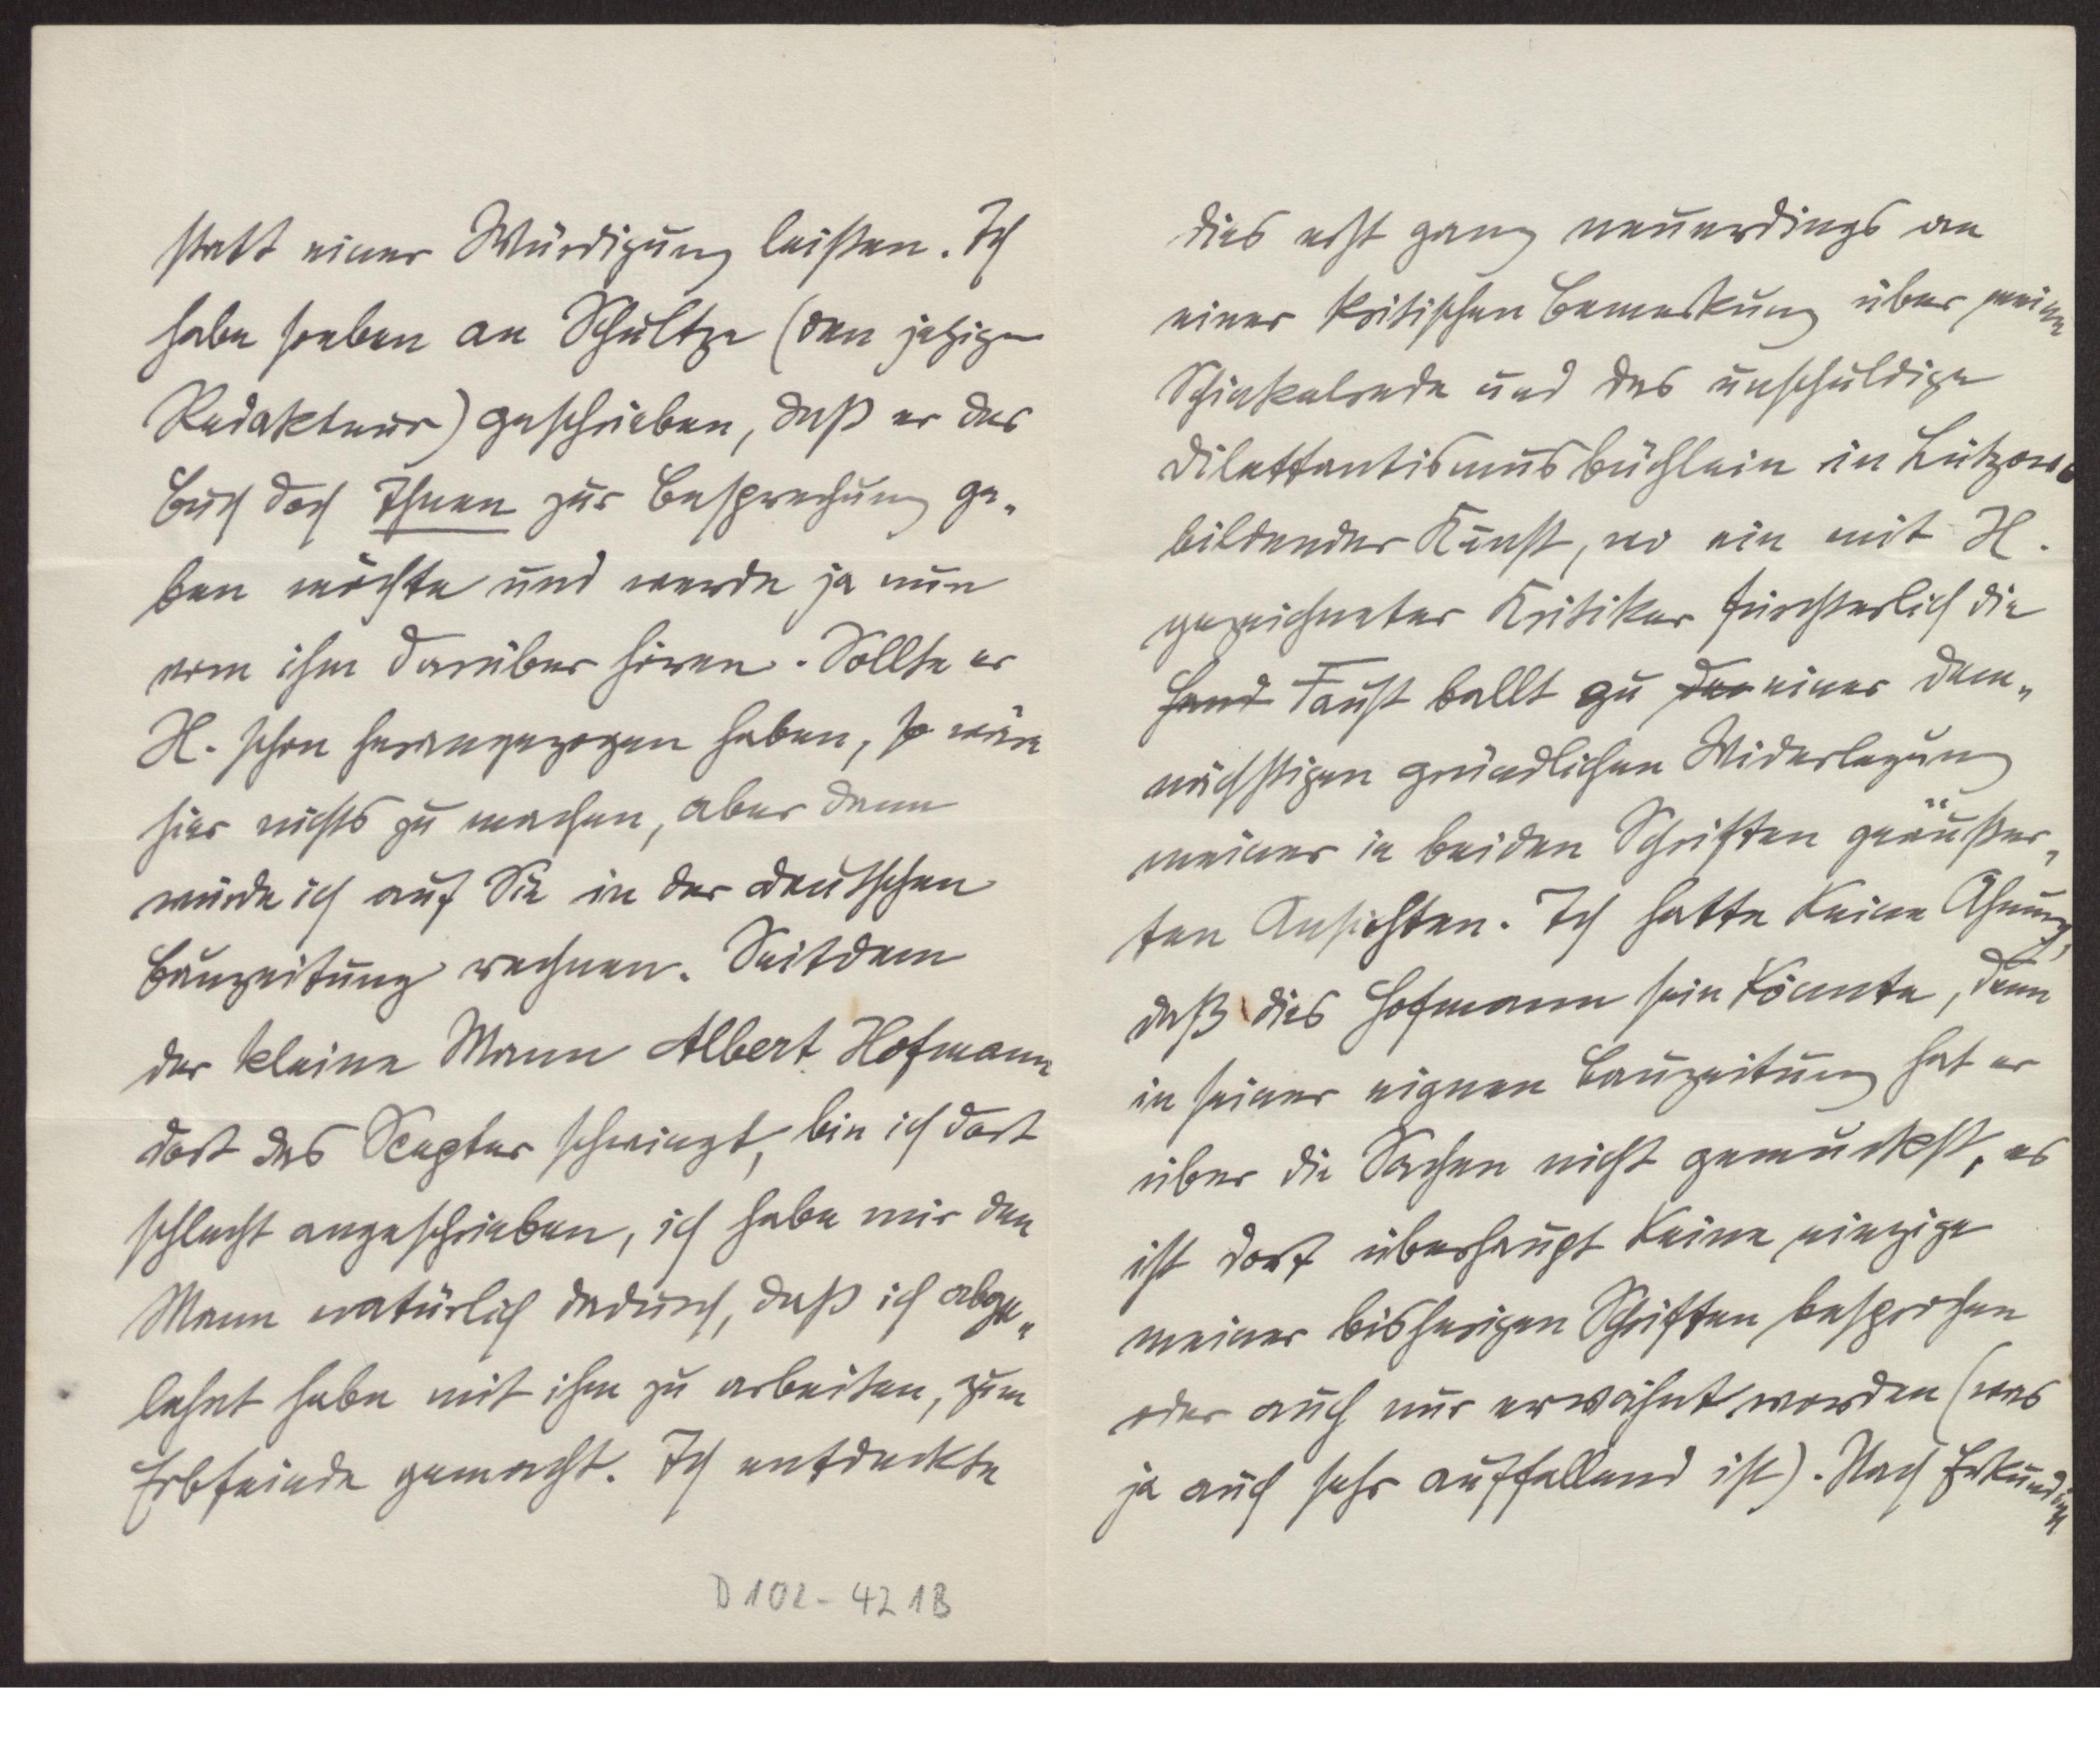 statt einer Würdigung leisten. Ich
habe soeben an Schultze (den jetzigen
Redakteur) geschrieben, daß er das
Buch doch Ihnen zur Besprechung ge„
ben möchte und werde ja nun
von ihm darüber hören. Sollte er
H. schon herangezogen haben, so wäre
hier nichts zu machen, aber dann
würde ich auf Sie in der deutschen
Bauzeitung rechnen. Seitdem
der kleine Mann Albert Hofmann
dort das Scepter schwingt, bin ich dort
schlecht angeschrieben, ich habe mir den
Mann natürlich dadurch, daß ich abge„
lehnt habe mit ihm zu arbeiten, zum
Erbfeinde gemacht. Ich entdeckte
D 102 - 42 1B
dies erst ganz neuerdings an
einer kritischen Bemerkung über meine
Schinkelrede und das unschuldige
Dilettantismusbüchlein in Lützows
bildender Kunst, wo ein mit H.
gezeichneter Kritiker fürchterlich die
Hand Faust ballt zu der einer dem„
nächstigen gründlichen Widerlegung
meiner in beiden Schriften geäußer„
ten Ansichten. Ich hatte keine Ahnung,
daß dies Hofmann sein könnte, denn
in seiner eignen Bauzeitung hat er
über die Sachen nicht gemuckst, es
ist dort überhaupt keine einzige
meiner bisherigen Schriften besprochen
oder auch nur erwähnt worden (was
ja auch sehr auffallend ist). Nach